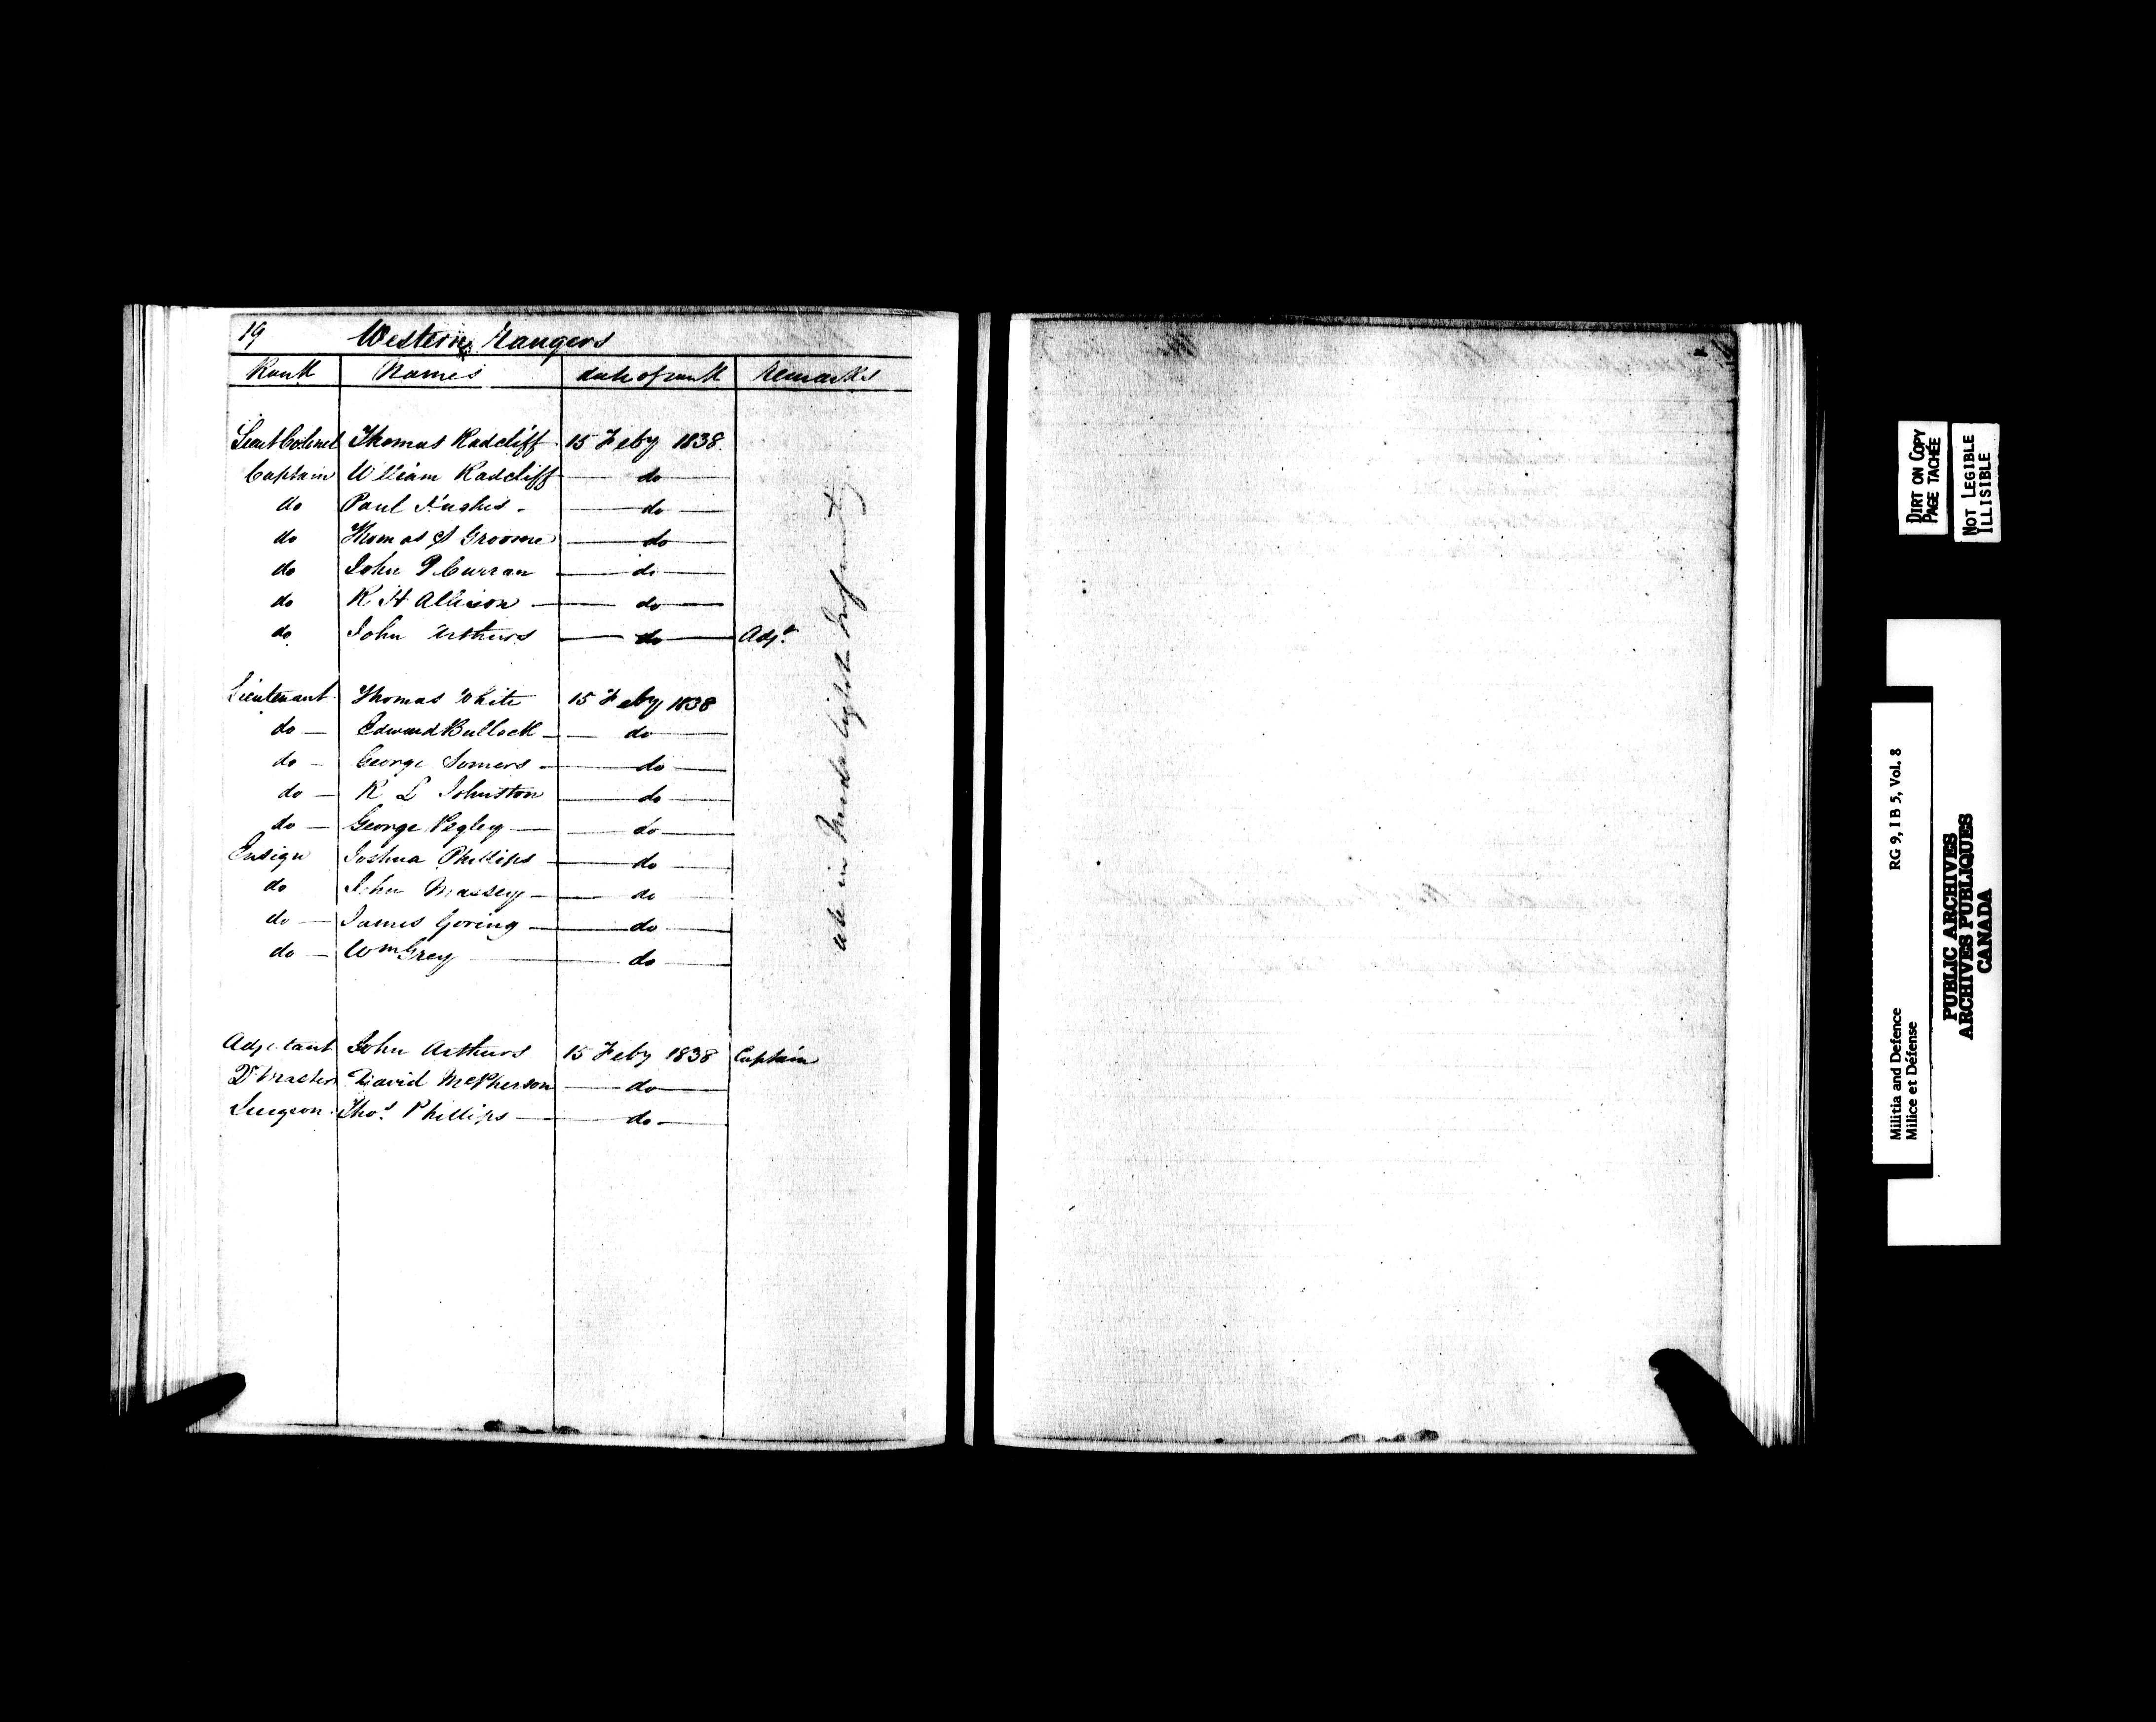 19 Western Rangers
Rank Names date of rank Remarks
Lieut Colonel Thomas Radcliff 15 Feby 1838.
Captain William Radcliff do
do Paul Hughes do
do Thomas S Groome do
do John P Curran do
do R H Allison do
do John Arthurs do Adjt
Lieutenant Thomas White 15 Feby 1838
do Edward Bullock do
do George Somers do
do R L Johnston do
do George Pegley do
Ensign Joshua Phillips do
do John Massey do
do James Goring do
do Wm Grey do
Adjutant John Arthurs 15 Feby 1838 Captain
Qr Master David McPherson do
Surgeon Thos Phillips do
light Infantry
DIRT ON COPY
PAGE TACHÉE
NOT LEGIBLE
ILLISIBLE
Militia and Defence RG 9, I B 5, Vol. 8
Milice et Défense
PUBLIC ARCHIVES
ARCHIVES PUBLIQUES
CANADA